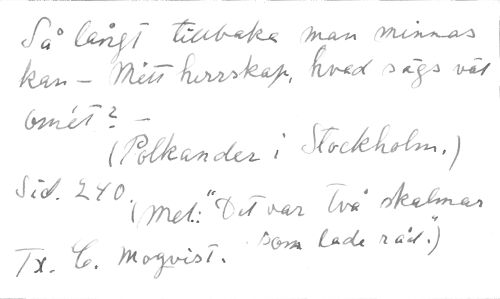 Så långt tillbaka man minnas
kan – Mitt herrskap, hvad sägs väl
omét? –
(Polkander i Stockholm.)
Sid. 240.
(Mel.: "Det var två skalmar
som lade råd".)
Tx. C. Moqvist.